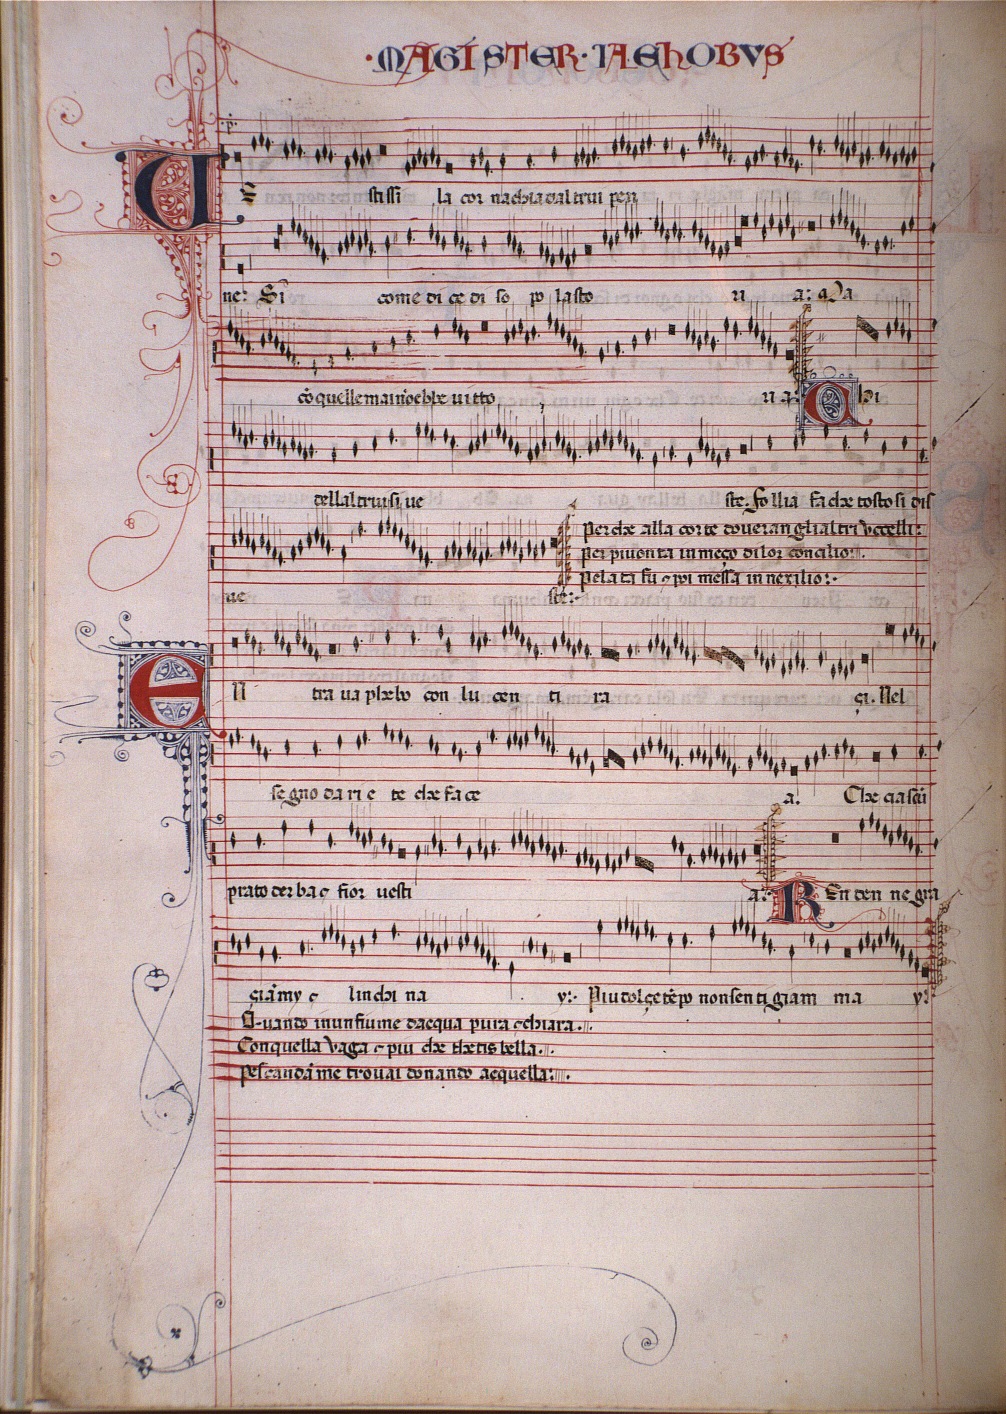 ·MAGISTER·IAEhOBVS
VE stissi la cor nachia dal trui pen
ne: Sì come di ce di so po lasto ri a: Ma
cōquelle mai nōebbe uitto ri a: Chi
dell altrui si ue ste: fo llia fa che tosto si dis
Perche alla corte doueran gli altri vccelli:
per piuonta in meço di lor concilio:
Pelata fu ꞇ poi messa in nexilio:·
ue ste:·
EN tra ua phebo con lu cen ti ra çi. Nel
se gno da ri e te che fa ce a. Che ciascū
prato der ba ꞇ fior uesti a: REn den ne gra
çiāmy ꞇ lin chi na y:· Piu dolçe tēpo non sen ti giam ma y:
Quando inun fiume dacqua pura ꞇ chiara.
Conquella vaga ꞇ piu che thetis bella.
Pescandā me trouai donando aequella: